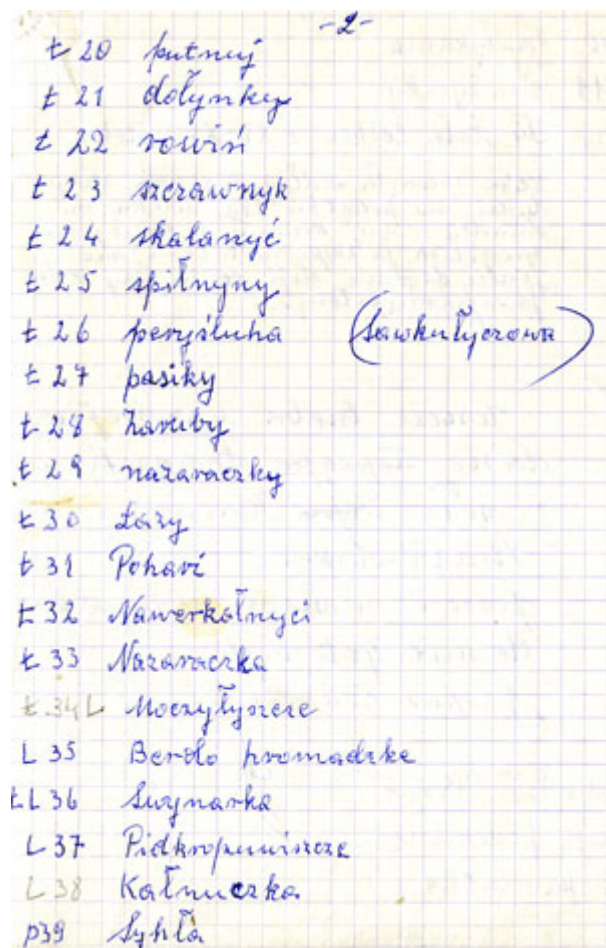 -2-
ł 20 putnyj
ł 21 dołynky
ł 22 rowiń
ł 23 szczawnyk
ł 24 skalanyć
ł 25 spiłnyny
ł 26 peryśluha (Sawkułyczowa)
ł 27 pasiky
ł 28 Zaruby
ł 29 nazaraczky
ł 30 Łazy
ł 31 Pohari
ł 32 Nawerkałnyci
ł 33 Nazaraczka
ł 34 L Moczyłyszcze
L 35 Berdo hromadzke
łL 36 Swynarka
L 37 Pidkropuwiszcze
L 38 Kałnuczka
p39 Syhła